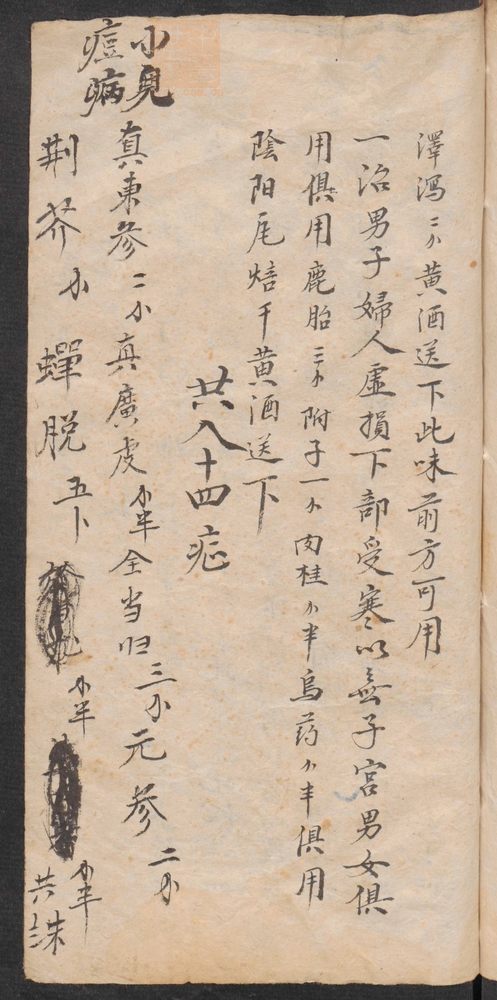 澤瀉二小黄酒送下此味前方可用
一治男子婦人虚損下部受寒以無子宮男女俱
用俱用鹿胎三小附子一小肉桂小半烏药小半俱用
陰阳尾焙干黄酒送下
共八十四症
小兒
痘病
真東参二小真廣皮小半全当归三小元参二小
荆芥小蟬脱五下小半小半
共洙